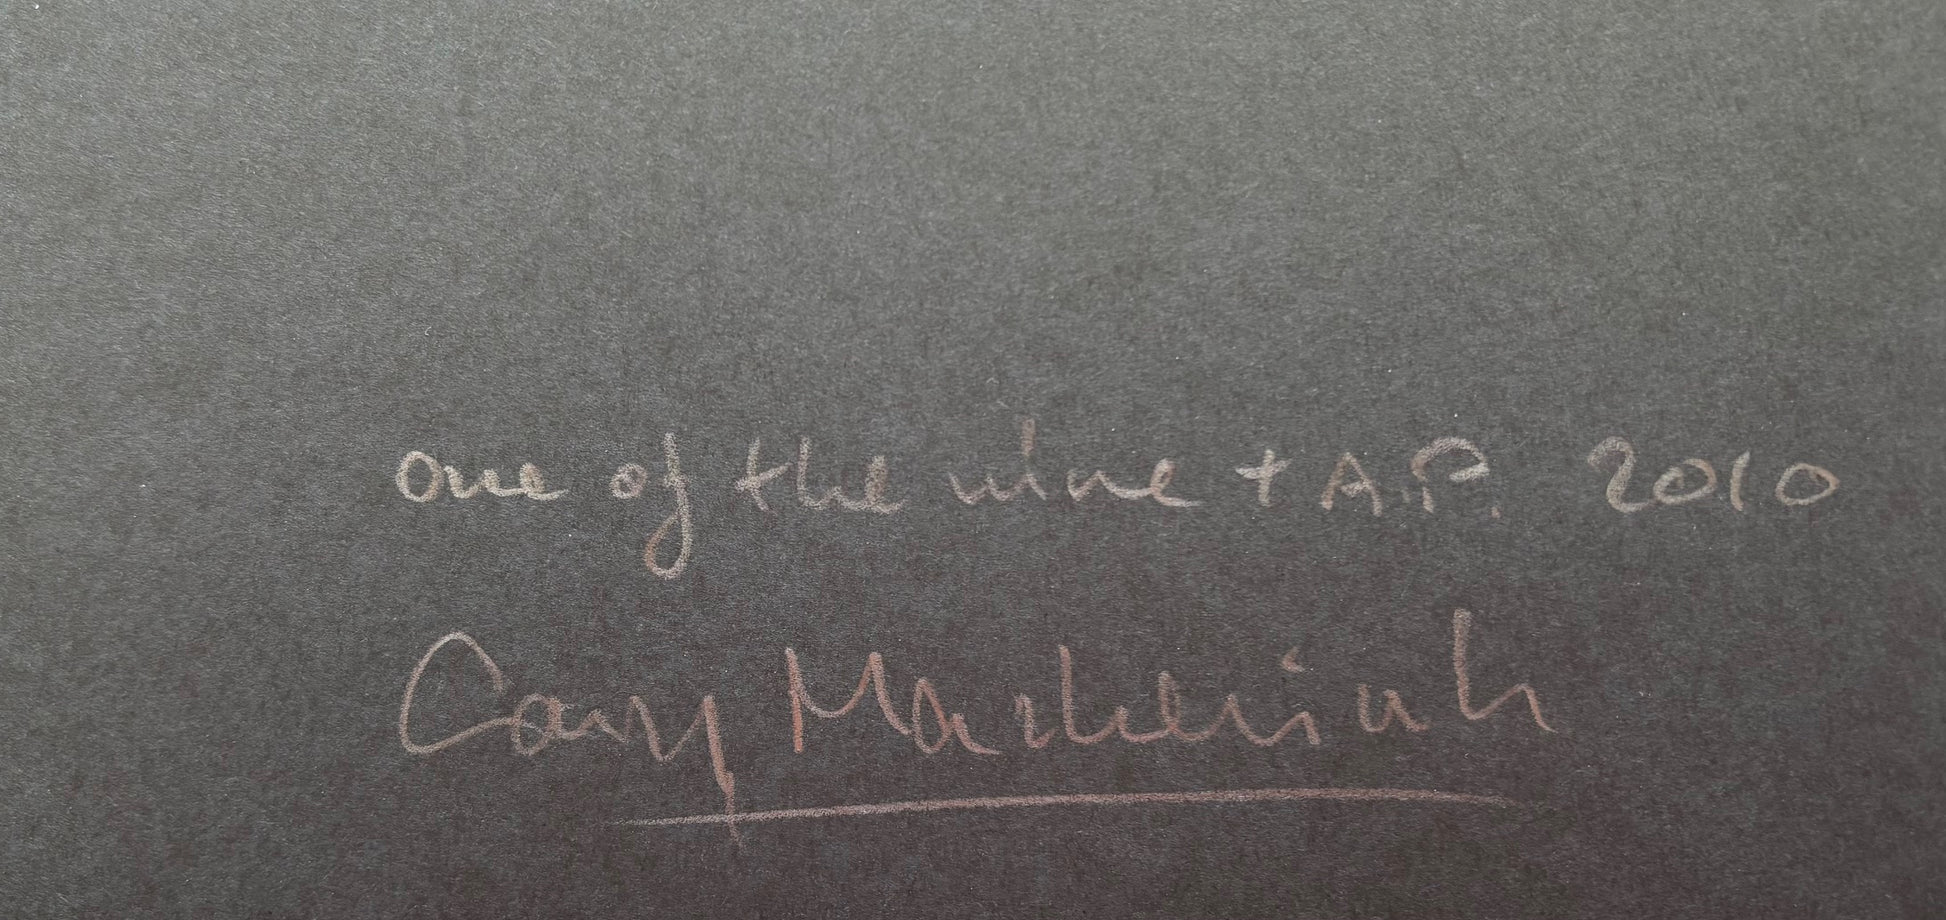 one of the nine + A.P. 2010
Cary Markerink